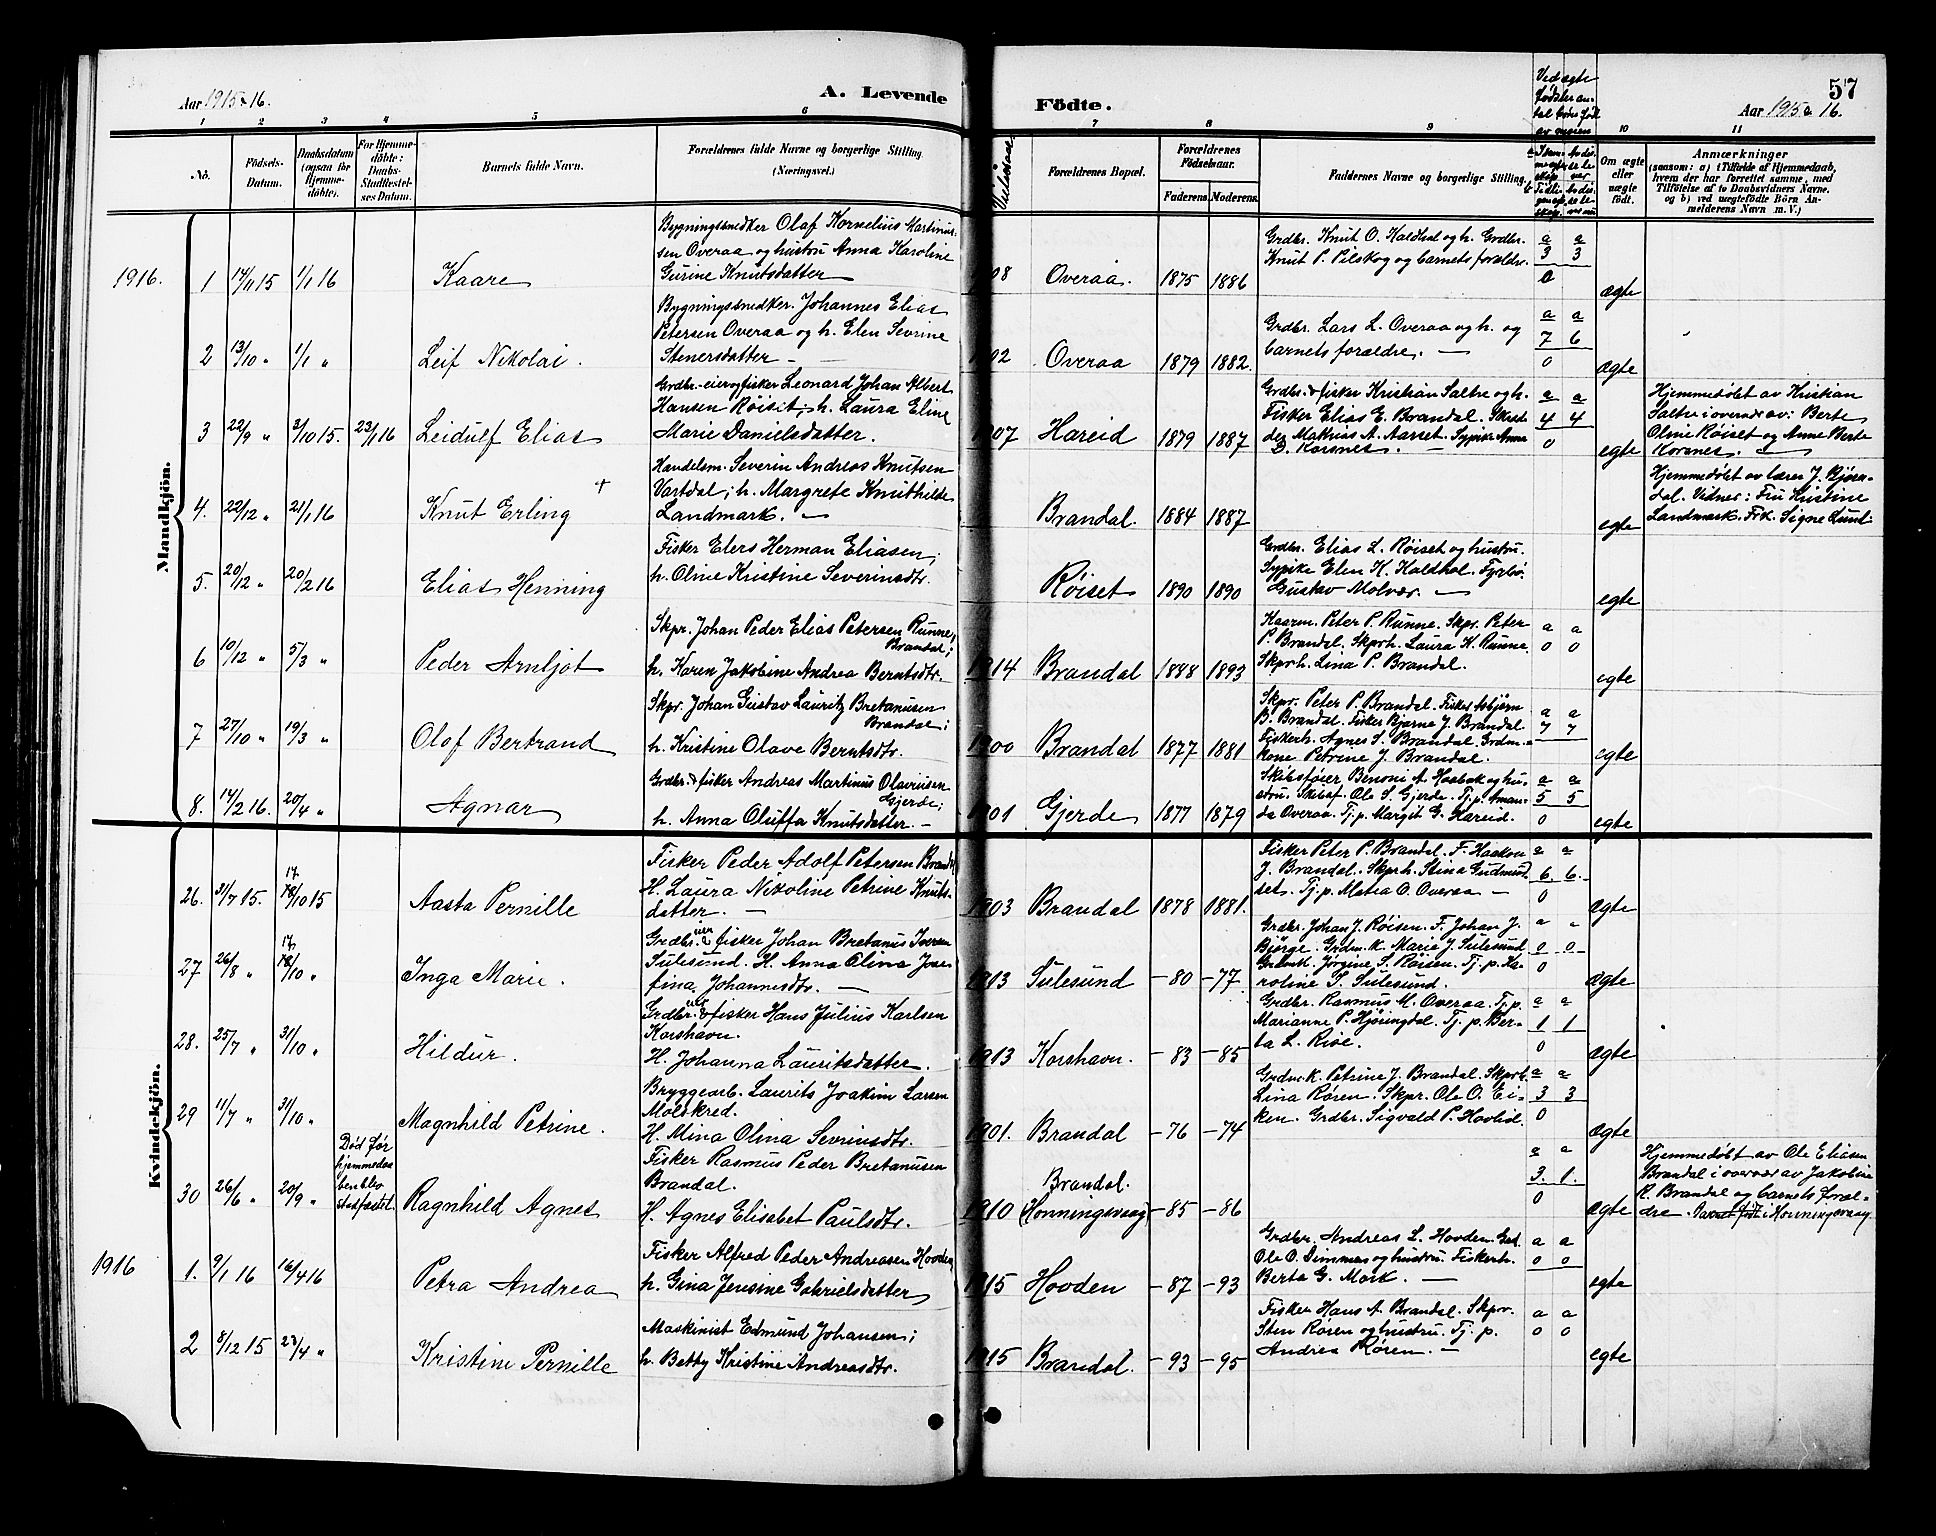 Aar 1915 & 16.
A. Levende
Födte.
57
Aar 1915 & 16.
1 2 3 4 5 6 7 8 9 10 11
No.
Födsels-
Datum.
Daabsdatum
(ogsaa for
Hjemme-
döbte).
For Hjemme-
döbte:
Daabs-
Stadfæstel-
ses Datum.
Barnets fulde Navn.
Forældrenes fulde Navne og borgerlige Stilling
(Næringsvei.)
Forældrenes Bopæl.
Forældrenes
Födselsaar.
Faderens.
Moderens.
Faddernes Navne og borgerlige Stilling.
Om ægte
eller
uægte
födt.
Anmærkninger
(saasom: a) i Tilfælde af Hjemmedaab,
hvem der har forrettet samme, med
Tilföielse af to Daabsvidners Navne,
og b) ved uægtefödte Börn An-
melderens Navn m. V.)
Mandkjön.
1916.
1 14/11 15 1/1 16 Kaare
Bygningssnedker Olaf Kornelius Martinus-
sen Overaa og hustru Anna Karoline
Gurine Knutsdatter
Overaa. 1875 1886
Grdbr. Knut O. Haldhol og h. Grdbr.
Knut P. Pilskog og barnets forældre.
a a
3 3
0
ægte
2 13/10 " 1/1 " Leif Nikolai.
Bygningssnedker. Johannes Elias
Petersen Overaa og h. Elen Sevrine
Stenersdatter
Overaa 1879 1882.
Grdbr. Lars L. Overaa og h. og
barnets forældre.
a a
7 6
0
ægte
3 22/9 " 3/10 15. 23/1 16 Leidulf Elias
Grdbr.-eier og fisker Leonard Johan Albert
Hansen Røiset; h. Laura Eline
Marie Danielsdatter.
1907 Hareid 1879 1887
Grdbr. & fisker Kristian Saltre og h.
Fisker Elias E. Brandal.
D. Korsnes.
a a
4 4
0
egte
Hjemmedøbt av Kristian
Oline Røiset og Anne Berte
Korsnes.
4. 22/12 " 21/1 16 Knut Erling +
Handelsm. Severin Andreas Knutsen
Vartdal; h. Margrete Knuthilde
Landmark.
Brandal. 1884 1887
egte
Hjemmedøbt av lærer J. Bjørn-
dal. Vidner: Fru Kristine
Landmark. Frk. Signe Lund
5. 20/12 " 20/2 16 Elias Henning
Fisker Elers Herman Eliasen;
h. Oline Kristine Severinsdtr.
Røiset 1890 1890
Grdbr. Elias L. Røiset og hustru.
Sypike Elen K. Haldhol.
Gustav Molvær.
egte
6 10/12 " 5/3 " Peder Arnljot
Skpr. Johan Peder Elias Petersen Runne,
Brandal;
h. Karen Jakobine Andrea Berntsdtr.
1914 Brandal 1888 1893
Kaarm. Peter P. Runne. Skpr. Peter
P. Brandal. Skprh. Laura K. Runne.
Skprh. Lina P. Brandal.
a a
0 0
egte
7 27/10 " 19/3 " Olaf Bertrand
Skpr. Johan Gustav Lauritz Bretanusen
Brandal;
h. Kristine Olave Berntsdtr.
1900 Brandal 1877 1881
Skpr. Peter P. Brandal. Fisker Asbjørn
B. Brandal. Fisker Bjarne J. Brandal.
Fiskerh. Agnes S. Brandal. Grdm.-
kone Petrine J. Brandal.
a a
7 7
egte
8. 14/2 16. 20/4 " Agnar
Grdbr. & fisker Andreas Martinus Olavusen
Gjerde;
h. Anna Oluffa Knutsdatter.
1901 Gjerde 1877 1879
Skibsføier Benoni A. Haabak og hu-
stru. Skibsf. Ole S. Gjerde. Tj.p. Aman-
da Overaa. Tj.p. Margit G. Hareid.
a a
5 5
0
egte
Kvindekjön.
26. 31/7 15. 17/10 15 Aasta Pernille
Fisker Peder Adolf Petersen Brandal
H. Laura Nikoline Petrine Knuts-
datter.
1903 Brandal 1878 1881.
Fisker Peter P. Brandal. F. Haakon
J. Brandal. Skprh. Stina Gudmund-
set. Tj.p. Matea O. Overaa
a a
6. 6.
0
ægte
27 26/8 " 17/10 " Inga Marie.
Grdbr. & fisker Johan Bretanus Iversen
Sulesund. H. Anna Olina Jose-
fina Johannesdtr.
1913 Sulesund -80 -77
Grdbr. Johan J. Røisen. F. Johan J.
Bjørge. Grdm.k. Marie J. Sulesund.
Jørgine S. Røisen. Tj.p. Ka-
roline S. Sulesund.
a "
0 0
0
ægte
28. 25/7 " 31/10 " Hildur.
Grdbr. & fisker Hans Julius Karlsen
Korshavn.
H. Johanna Lauritsdatter.
1913 Korshavn. -83 -85
Grdbr. Rasmus M. Overaa. Tj.p.
Marianne P. Hjøringdal. Tj.p. Ber-
ta L. Rise.
a a
1 1
0
ægte
29 11/7 " 31/10 " Magnhild Petrine.
Bryggearb. Laurits Joakim Larsen
Molskred.
H. Mina Olina Sevrinsdtr.
1901. Brandal -76 -74
Grdm.k. Petrine J. Brandal. Skprh.
Lina Røren. Skpr. Ole O. Ei-
ken. Grdbr. Sigvald P. Hovlid.
a a
3 3
0
ægte
30 26/6 " 20/9 " Død før
hjemmedaa-
ben blev
stadfæstet.
Ragnhild Agnes
Fisker Rasmus Peder Bretanusen
Brandal.
H. Agnes Elisabet Paulsdtr.
1910 Brandal.
(Honningsvaag -85 -86
a a
3. 1.
0
ægte
Hjemmedøbt av Ole Eliasen
Brandal i overvær av Jakobine
R. Brandal og barnets foræl-
dre. Barnet født i Honningsvaag.
1916
1. 9/1 16 16/4 16 Petra Andrea
Fisker Alfred Peder Andreasen Hovden
h. Gina Jensine Gabrielsdatter
1915 Hovden -87 -93
Grdbr. Andreas L. Hovden.
Ole O. Dimmen og hustru. Fiskerh.
Berta G. Mork.
a a
0 0
egte
2 8/12 15 23/4 " Kristine Pernille
Maskinist Edmund Johansen;
h. Betty Kristine Andreasdtr.
1915 Brandal. -93 -95
Fisker Hans A. Brandal. Skpr.
Sten Røren og hustru. Tj.p.
Andrea Røren.
a a
0 0
egte